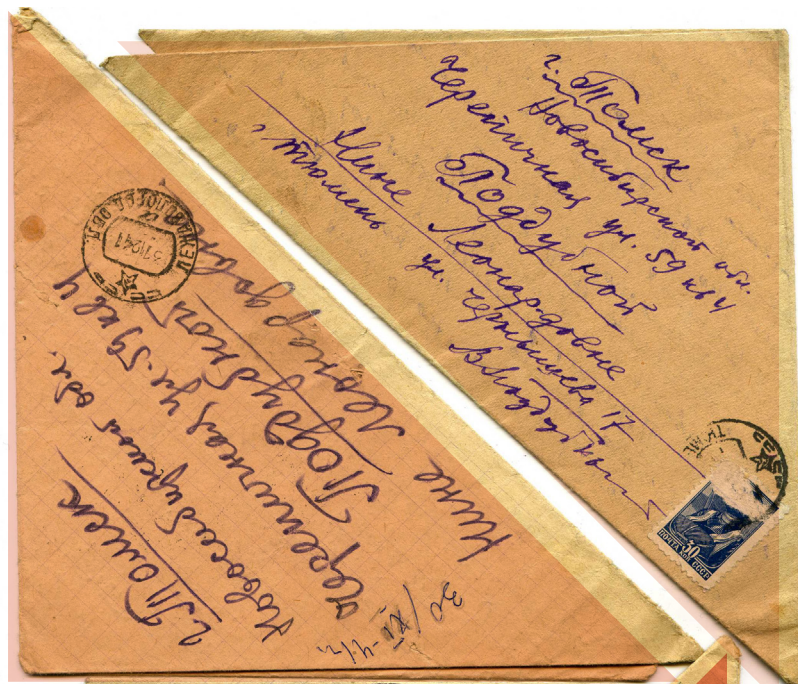 г. Томск
Новосибирской обл.
Черепичная ул. 59 кв 4
Поддубной
Нине Леонардовне
г. Тюмень ул. Чернышева 17
ПОЧТА 30 КОП СССР
г. Томск
Новосибирской обл.
Черепичная ул. 59 кв 4
Поддубной
Нине Леонардовне
30/XI